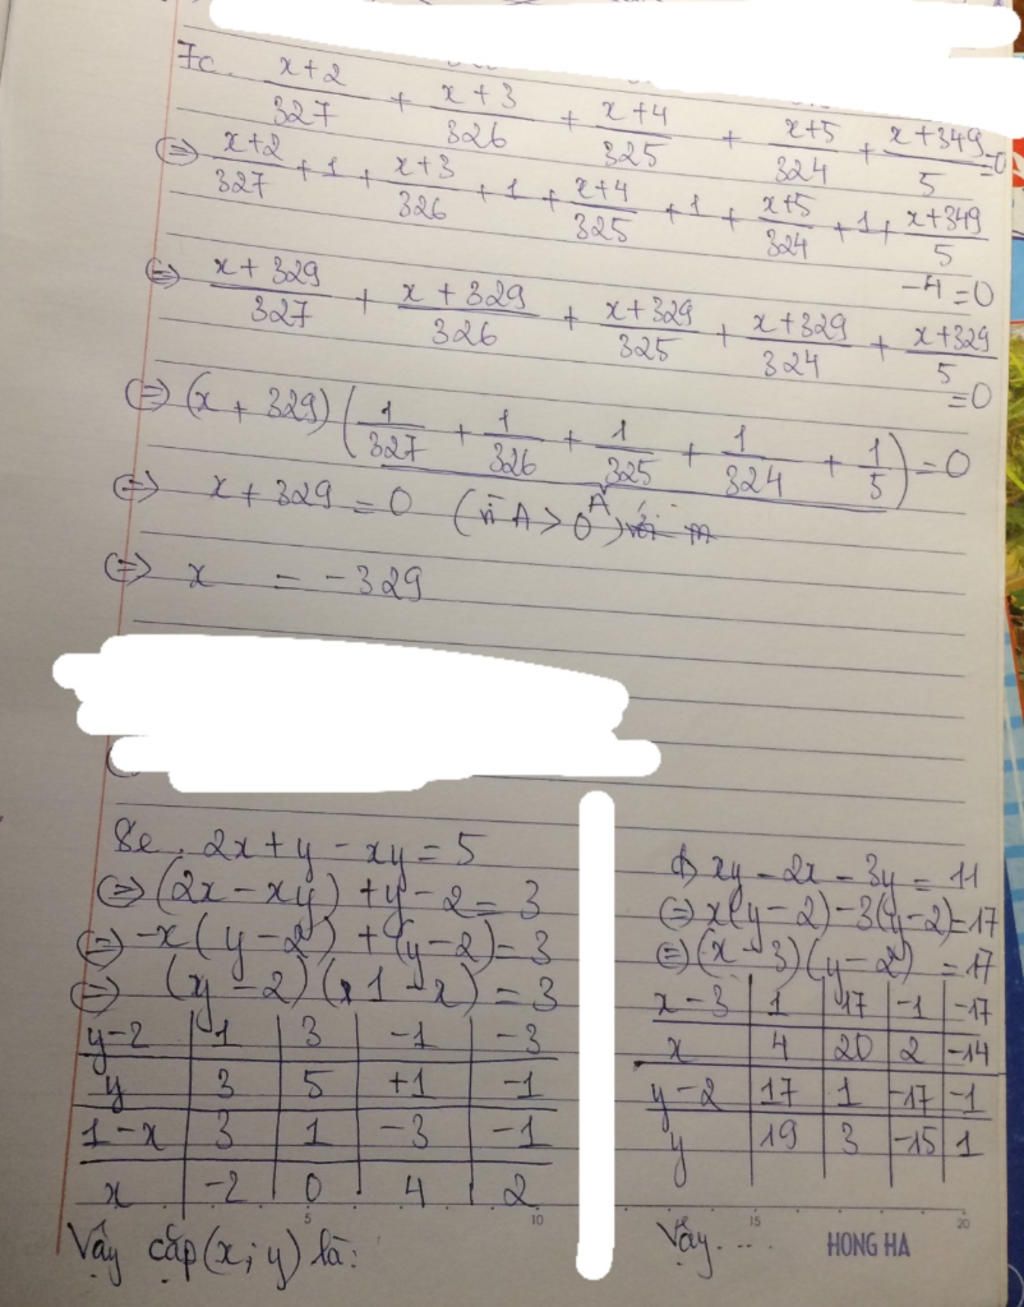 7c. x+2/327 + x+3/326 + x+4/325 + x+5/324 + x+349/5 = 0
<=> x+2/327 + 1 + x+3/326 + 1 + x+4/325 + 1 + x+5/324 + 1 + x+349/5
-4 = 0
<=> x+329/327 + x+329/326 + x+329/325 + x+329/324 + x+329/5
= 0
<=> (x + 329) (1/327 + 1/326 + 1/325 + 1/324 + 1/5) = 0
A
<=> x + 329 = 0 (vì A > 0)
<=> x = -329
8e. 2x + y - xy = 5
<=> (2x - xy) + y - 2 = 3
<=> -x(y - 2) + (y - 2) = 3
<=> (y - 2)(1 - x) = 3
y-2 | 1 | 3 | -1 | -3
y | 3 | 5 | +1 | -1
1-x | 3 | 1 | -3 | -1
x | -2 | 0 | 4 | 2
Vậy cặp (x; y) là:
f) xy - 2x - 3y = 11
<=> x(y - 2) - 3(y - 2) = 17
<=> (x - 3)(y - 2) = 17
x-3 | 1 | 17 | -1 | -17
x | 4 | 20 | 2 | -14
y-2 | 17 | 1 | -17 | -1
y | 19 | 3 | -15 | 1
Vậy....
5 10 15 20
HONG HA